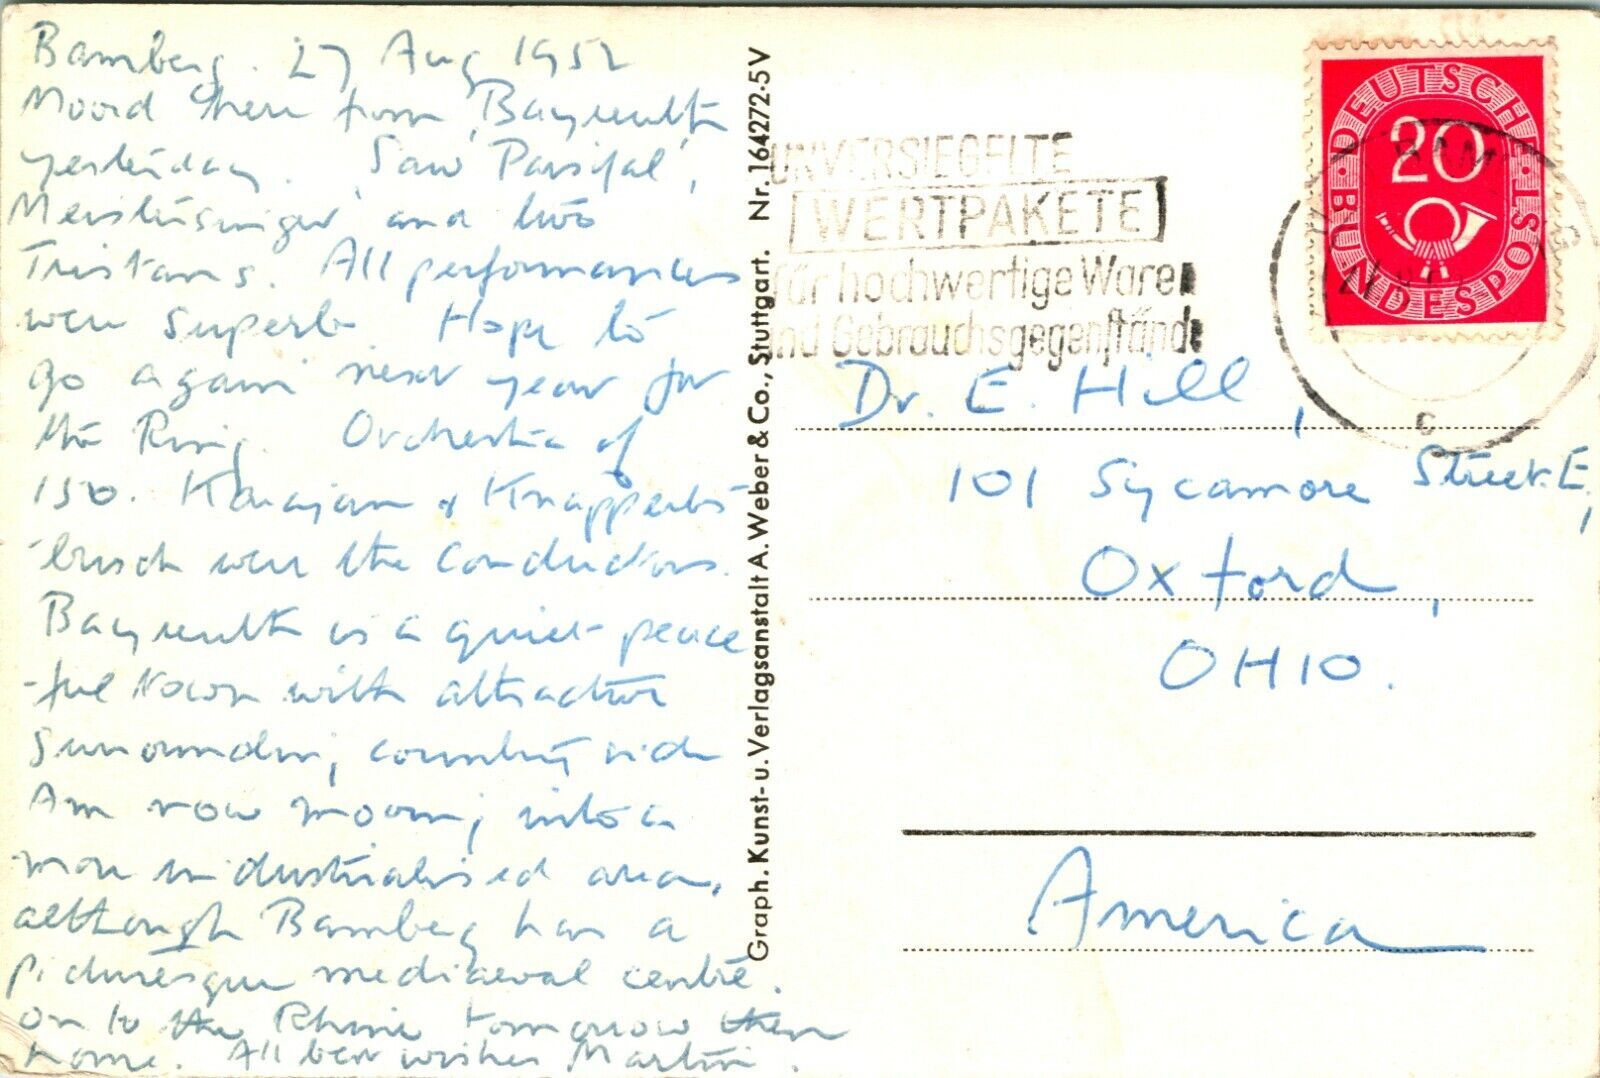 Bamberg. 27 Aug 1952
Moved here from Bayreuth
yesterday. Saw 'Parsifal',
Meistersinger' and two
Tristans. All performances
were superb. Hope to
go again next year for
the Ring. Orchestra of
150. Karajan & Knapperts-
-busch were the conductors.
Bayreuth is a quiet peace
-ful town with attractive
surrounding countryside
Am now moving into a
more industrialised area,
although Bamberg has a
picturesque mediaeval centre.
on to the Rhine tomorrow then
home. All best wishes Martin.
Graph. Kunst- u. Verlagsanstalt A. Weber & Co., Stuttgart. Nr. 164272-5V
UNVERSIEGELTE
WERTPAKETE
für hochwertige Waren
und Gebrauchsgegenstände
DEUTSCHE BUNDESPOST
20
c
Dr. E. Hill,
101 Sycamore Street. E,
Oxford,
OHIO.
America